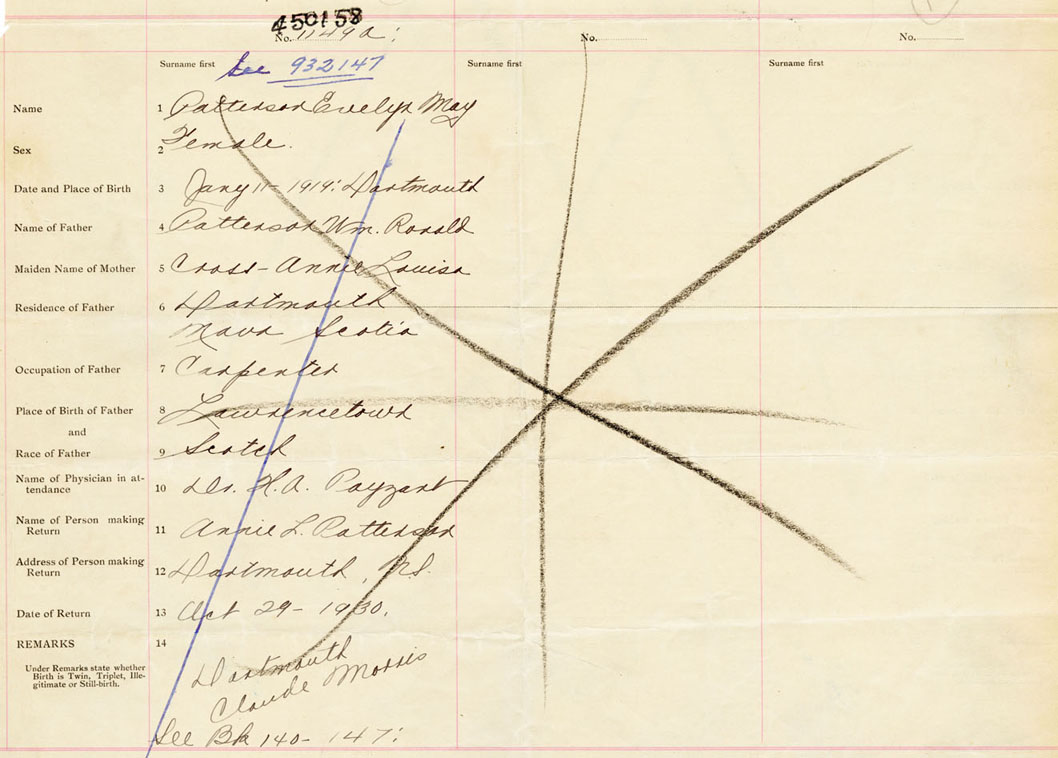 450158
No. 1149a: No. No.
Surname first See 932147 Surname first Surname first
Name 1 Patterson Evelyn May
Sex 2 Female.
Date and Place of Birth 3 Jany 11- 1919: Dartmouth
Name of Father 4 Patterson Wm. Ronald
Maiden Name of Mother 5 Cross-Annie Louisa
Residence of Father 6 Dartmouth
Nova Scotia
Occupation of Father 7 Carpenter
Place of Birth of Father 8 Lawrencetown
and
Race of Father 9 Scotch
Name of Physician in at-
tendance 10 Dr. H.A. Payzant
Name of Person making
Return 11 Annie L. Patterson
Address of Person making
Return 12 Dartmouth, N.S.
Date of Return 13 Oct 29- 1930.
REMARKS 14
Under Remarks state whether
Birth is Twin, Triplet, Ille-
gitimate or Still-birth.
Dartmouth
Claude Morris
See Bk 140- 147: